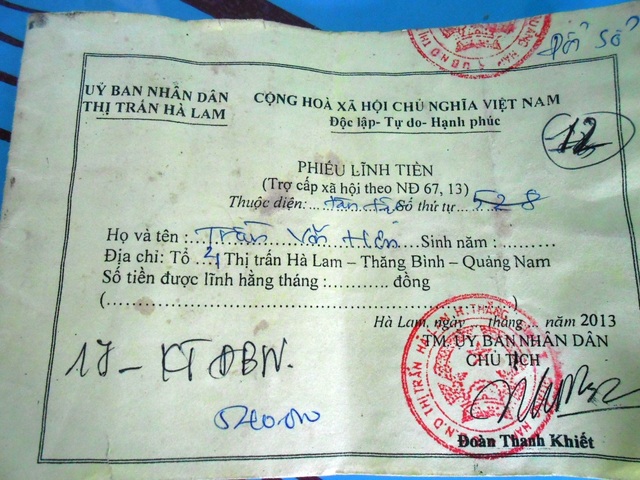 Đổi Sổ
UỶ BAN NHÂN DÂN
THỊ TRẤN HÀ LAM
CỘNG HOÀ XÃ HỘI CHỦ NGHĨA VIỆT NAM
Độc lập- Tự do- Hạnh phúc
12
PHIẾU LĨNH TIỀN
(Trợ cấp xã hội theo NĐ 67, 13)
Thuộc diện:... tàn tật Số thứ tự...528
Họ và tên : Trần Văn Hiền Sinh năm :............
Địa chỉ: Tổ 4 Thị trấn Hà Lam – Thăng Bình – Quảng Nam
Số tiền được lĩnh hằng tháng:........... đồng
(.............................................................)
Hà Lam, ngày tháng ... năm 2013
TM. UỶ BAN NHÂN DÂN
CHỦ TỊCH
17 - KT ĐBN.
Đoàn Thanh Khiết